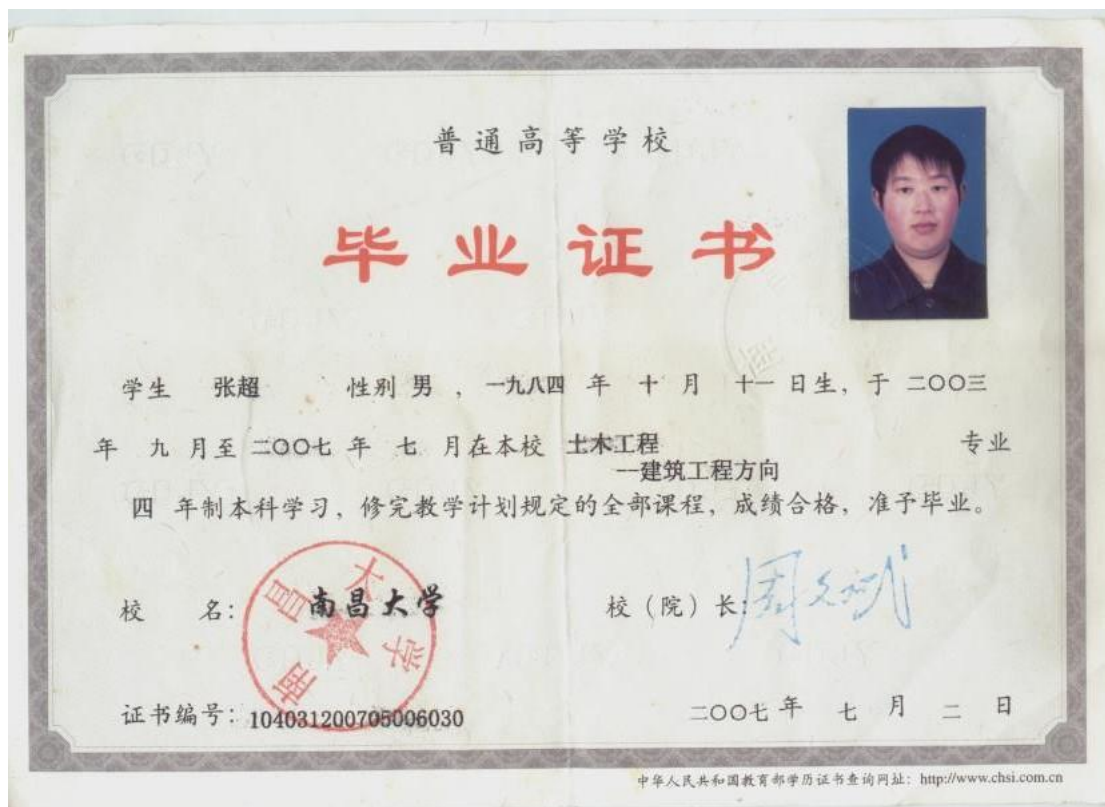 普通高等学校
毕业证书
学生 张超 性别 男 ，一九八四 年 十 月 十一 日生，于 二〇〇三
年 九 月至 二〇〇七 年 七 月在本校 土木工程 专业
—建筑工程方向
四 年制本科学习，修完教学计划规定的全部课程，成绩合格，准予毕业。
校 名：南昌大学
南昌大学
校（院）长：周文斌
证书编号：104031200705006030
二〇〇七 年 七 月 二 日
中华人民共和国教育部学历证书查询网址：http://www.chsi.com.cn